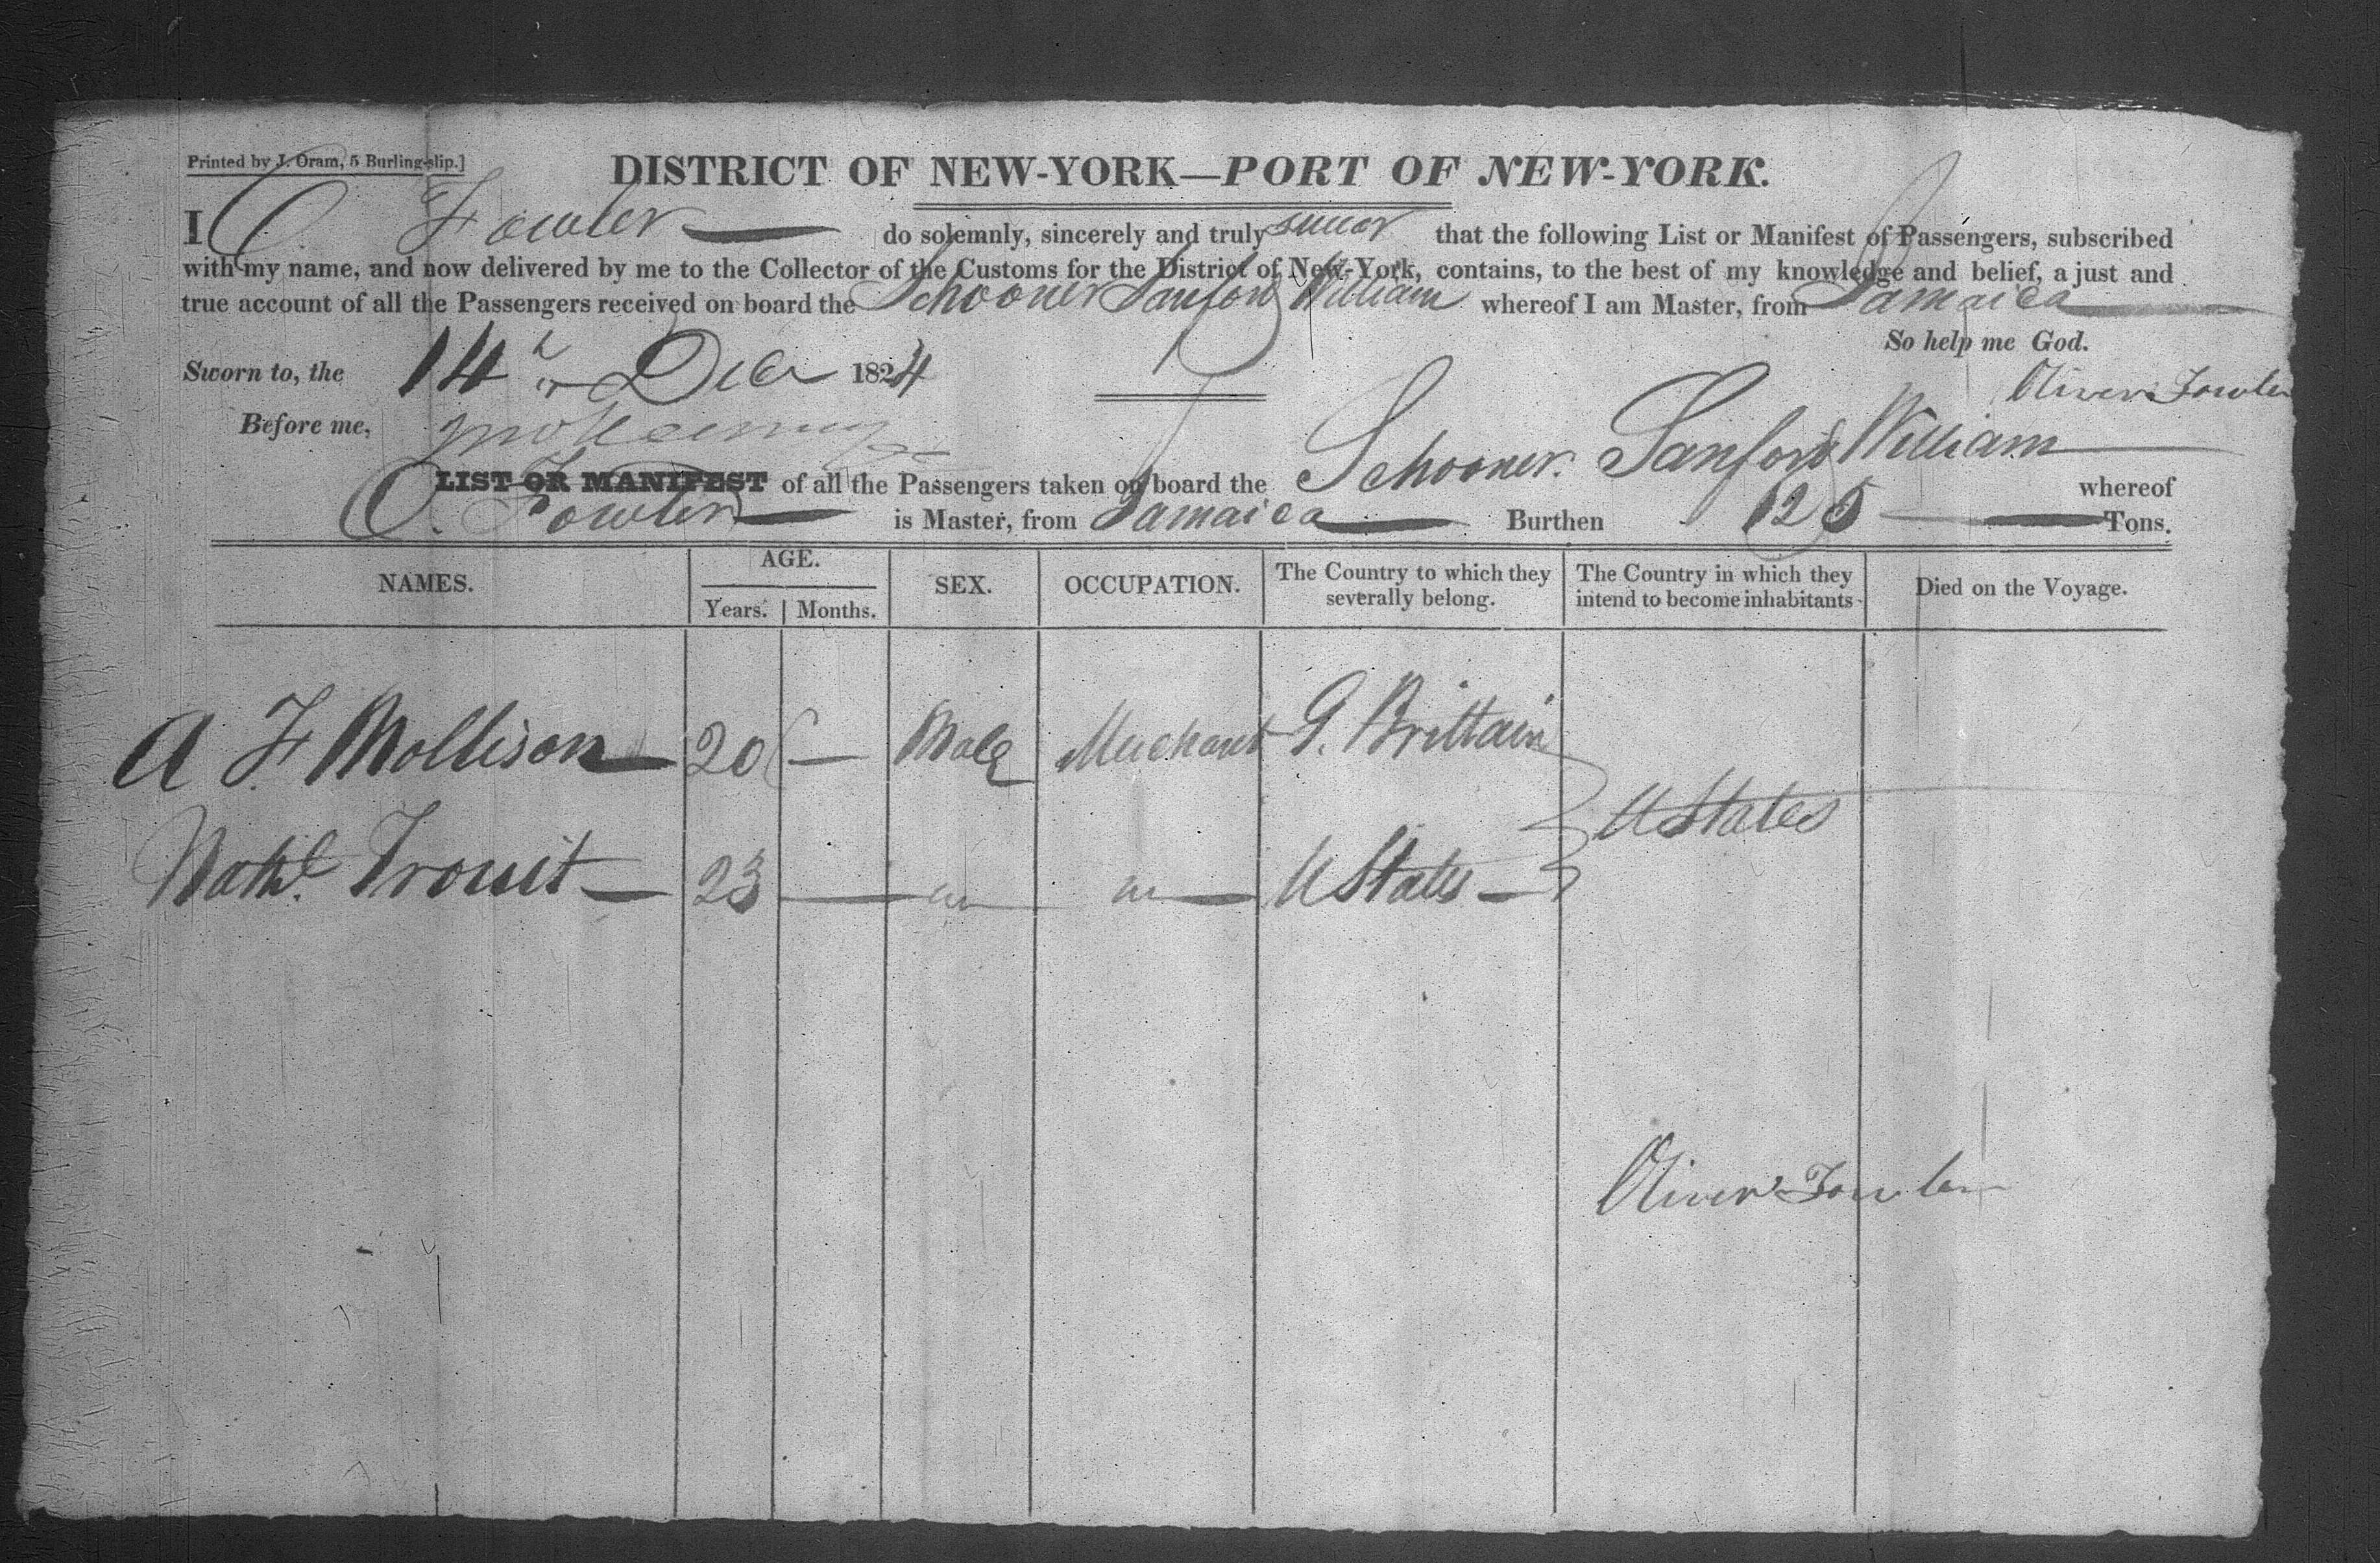 Printed by J. Oram, 5 Burling-slip.]
DISTRICT OF NEW-YORK—PORT OF NEW-YORK.
I O. Fowler do solemnly, sincerely and truly swear that the following List or Manifest of Passengers, subscribed
with my name, and now delivered by me to the Collector of the Customs for the District of New-York, contains, to the best of my knowledge and belief, a just and
true account of all the Passengers received on board the Schooner Sanford William whereof I am Master, from Jamaica
So help me God.
Sworn to, the 14th Decr 1824
Oliver Fowler
Before me,
LIST OR MANIFEST of all the Passengers taken on board the Schooner Sanford William whereof
O. Fowler is Master, from Jamaica Burthen 125 Tons.
NAMES. AGE. SEX. OCCUPATION. The Country to which they severally belong. The Country in which they intend to become inhabitants Died on the Voyage.
Years. Months.
A F Mollison 20 — Male Merchant G. Brittain
U States
Nathl. Trouit 23 — " " U States
Oliver Fowler